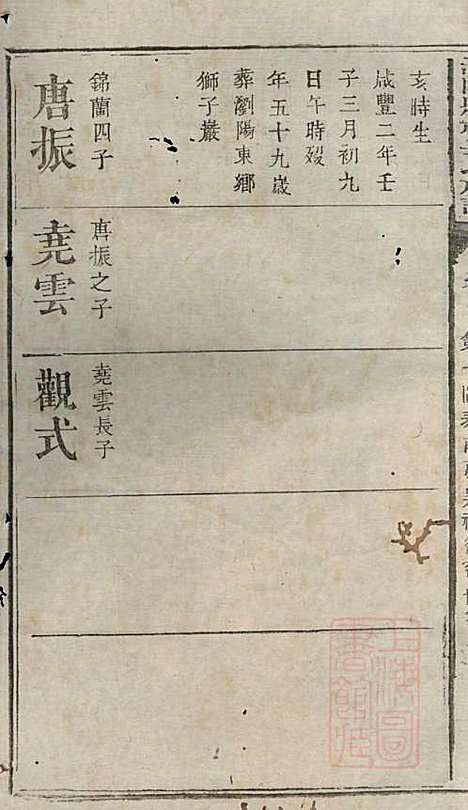 亥時生
咸豐二年壬
子三月初九
日午時歿
年五十九歲
葬瀏陽東鄉
獅子巖
錦蘭四子
唐振
唐振之子
堯雲
堯雲長子
觀式
上海圖
書館藏